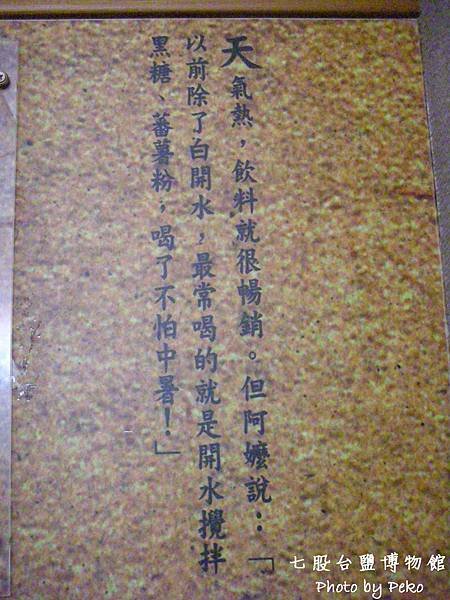 天氣熱，飲料就很暢銷。但阿嬤說：「
以前除了白開水，最常喝的就是開水攪拌
黑糖、蕃薯粉，喝了不怕中暑！」
七股台鹽博物館
Photo by Peko